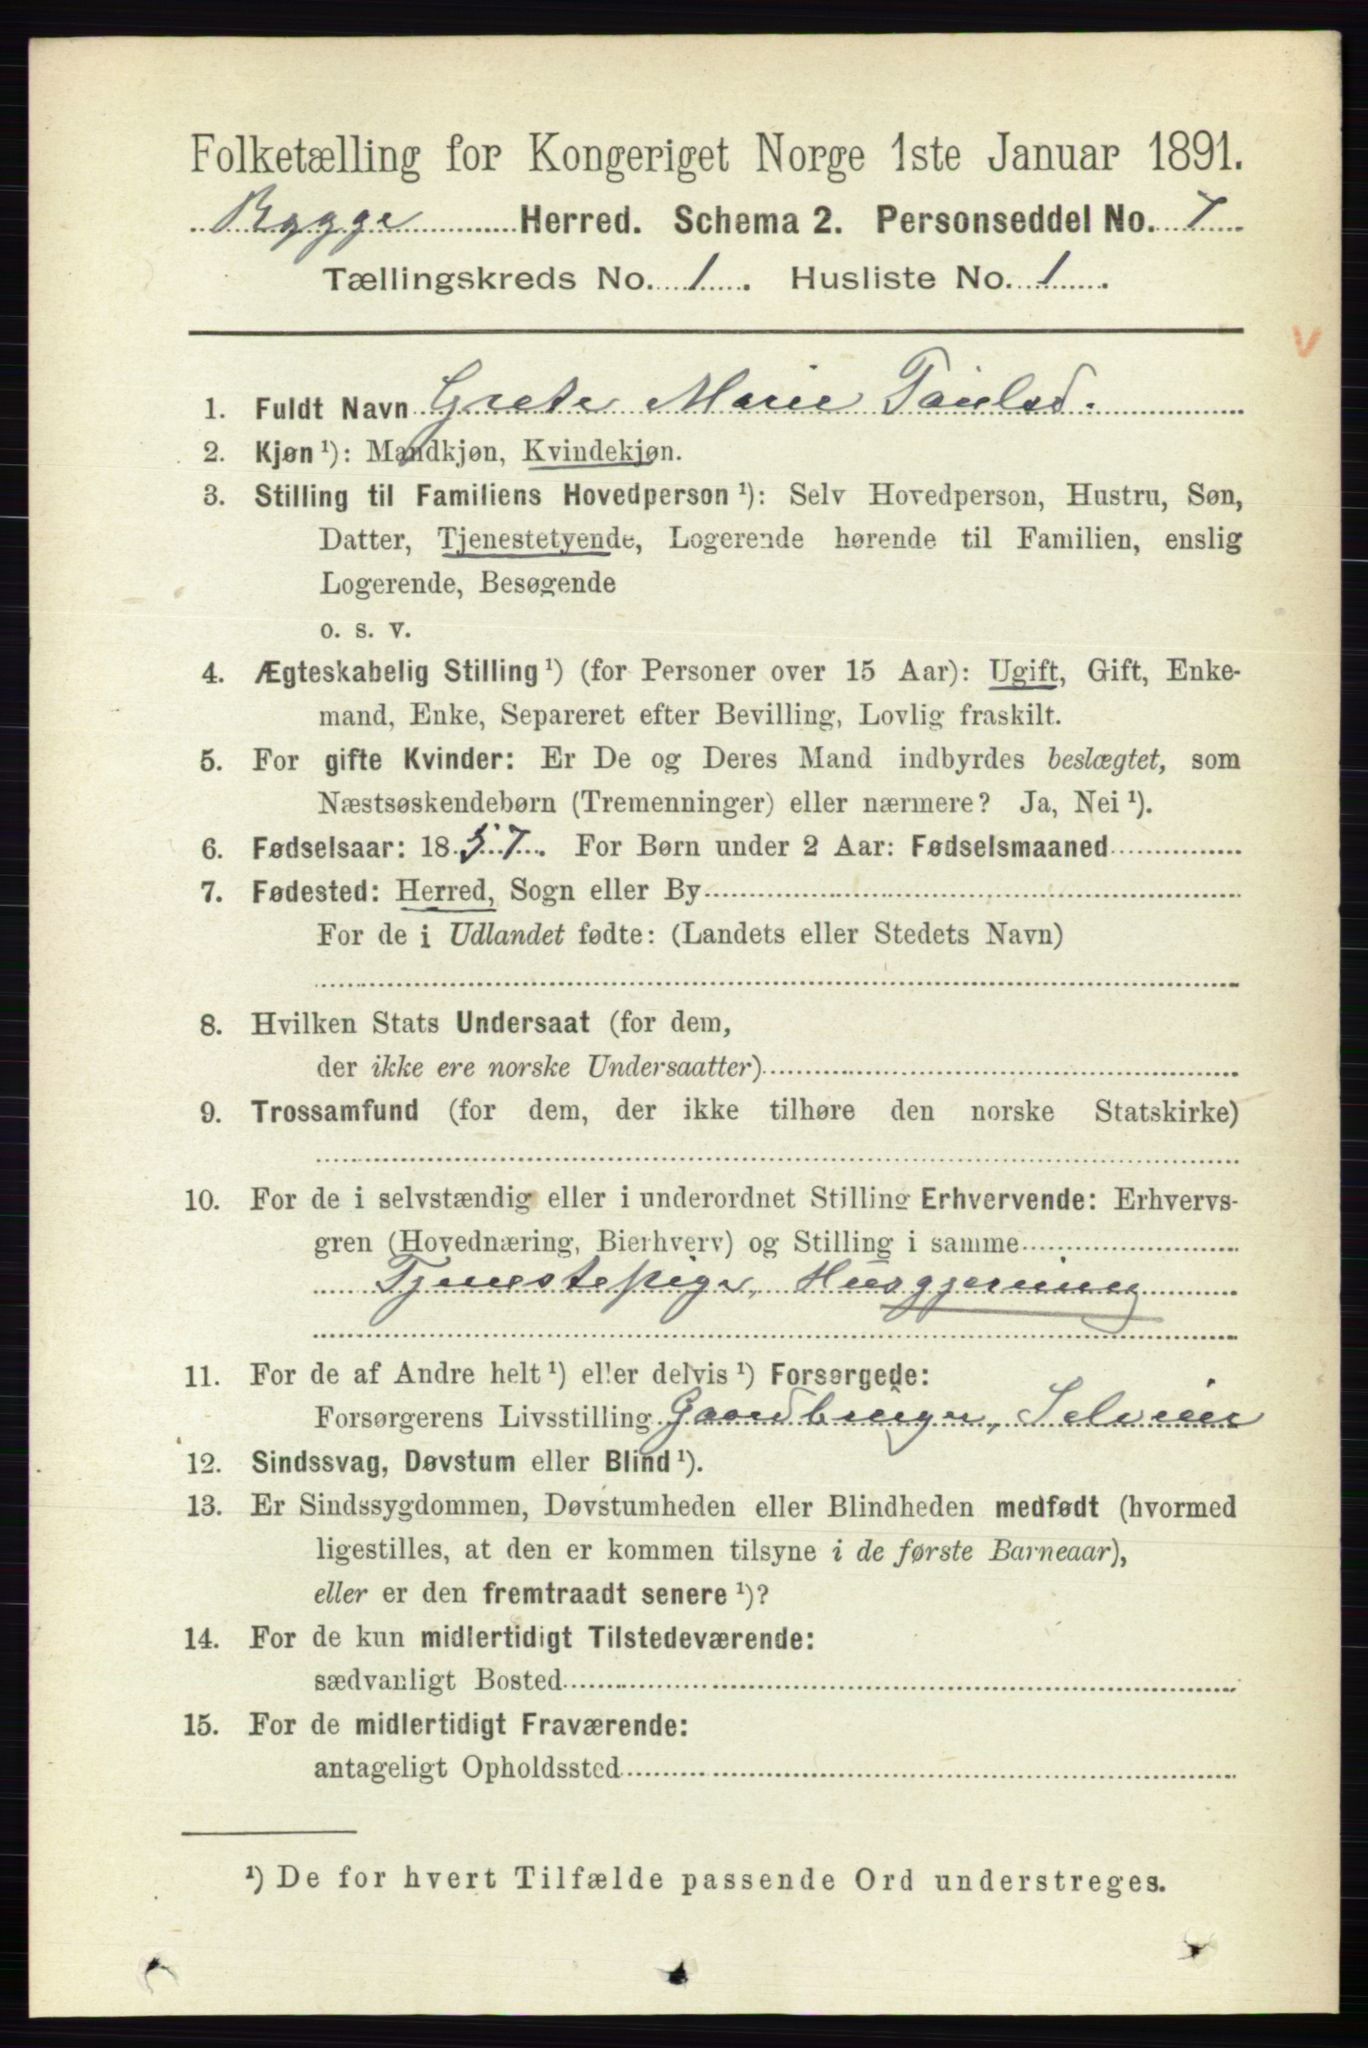 Folketælling for Kongeriget Norge 1ste Januar 1891.
Rygge Herred. Schema 2. Personseddel No. 7
Tællingskreds No. 1. Husliste No. 1.
1. Fuldt Navn Grete Marie Paulsd.
2. Kjøn ¹): Mandkjøn, Kvindekjøn.
3. Stilling til Familiens Hovedperson ¹): Selv Hovedperson, Hustru, Søn,
Datter, Tjenestetyende, Logerende hørende til Familien, enslig
Logerende, Besøgende
o. s. v.
4. Ægteskabelig Stilling ¹) (for Personer over 15 Aar): Ugift, Gift, Enke-
mand, Enke, Separeret efter Bevilling, Lovlig fraskilt.
5. For gifte Kvinder: Er De og Deres Mand indbyrdes beslægtet, som
Næstsøskendebørn (Tremenninger) eller nærmere? Ja, Nei ¹).
6. Fødselsaar: 1857. For Børn under 2 Aar: Fødselsmaaned
7. Fødested: Herred, Sogn eller By
For de i Udlandet fødte: (Landets eller Stedets Navn)
8. Hvilken Stats Undersaat (for dem,
der ikke ere norske Undersaatter)
9. Trossamfund (for dem, der ikke tilhøre den norske Statskirke)
10. For de i selvstændig eller i underordnet Stilling Erhvervende: Erhvervs-
gren (Hovednæring, Bierhverv) og Stilling i samme
Tjenestepige, Husgjerning
11. For de af Andre helt ¹) eller delvis ¹) Forsørgede:
Forsørgerens Livsstilling Gaardbruger, Selveier
12. Sindssvag, Døvstum eller Blind ¹).
13. Er Sindssygdommen, Døvstumheden eller Blindheden medfødt (hvormed
ligestilles, at den er kommen tilsyne i de første Barneaar),
eller er den fremtraadt senere ¹)?
14. For de kun midlertidigt Tilstedeværende:
sædvanligt Bosted
15. For de midlertidigt Fraværende:
antageligt Opholdssted
¹) De for hvert Tilfælde passende Ord understreges.